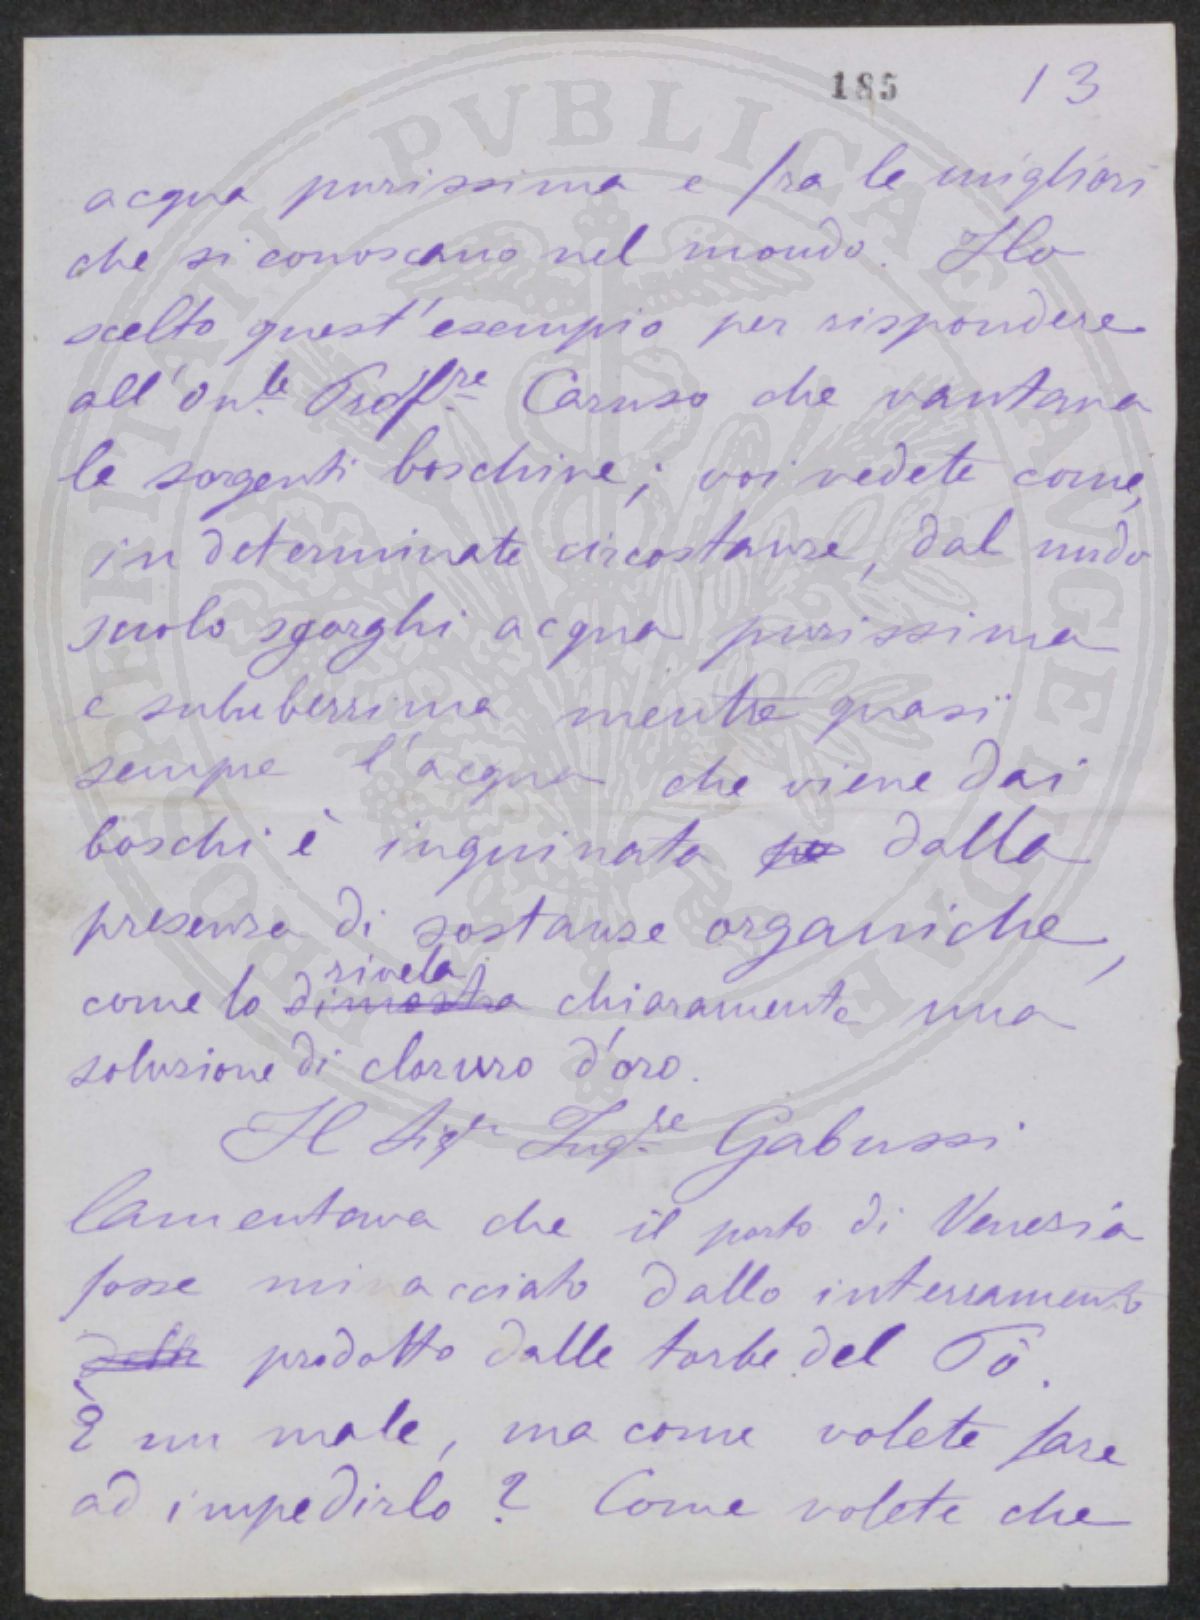 185 13
acqua purissima e fra le migliori
che si conoscano nel mondo. Ho
scelto quest'esempio per rispondere
all'On.le Prof.re Caruso che vantava
le sorgenti boschive; voi vedete come,
in determinate circostanze, dal nudo
suolo sgorghi acqua purissima
e saluberrima mentre quasi
sempre l'acqua che viene dai
boschi è inquinata pe dalla
presenza di sostanze organiche,
rivela
come lo dimostra chiaramente una
soluzione di cloruro d'oro.
Il Sigr Ing.re Gabussi
lamentava che il porto di Venezia
fosse minacciato dallo interramento
prodotto dalle torbe del Pò.
È un male, ma come volete fare
ad impedirlo? Come volete che